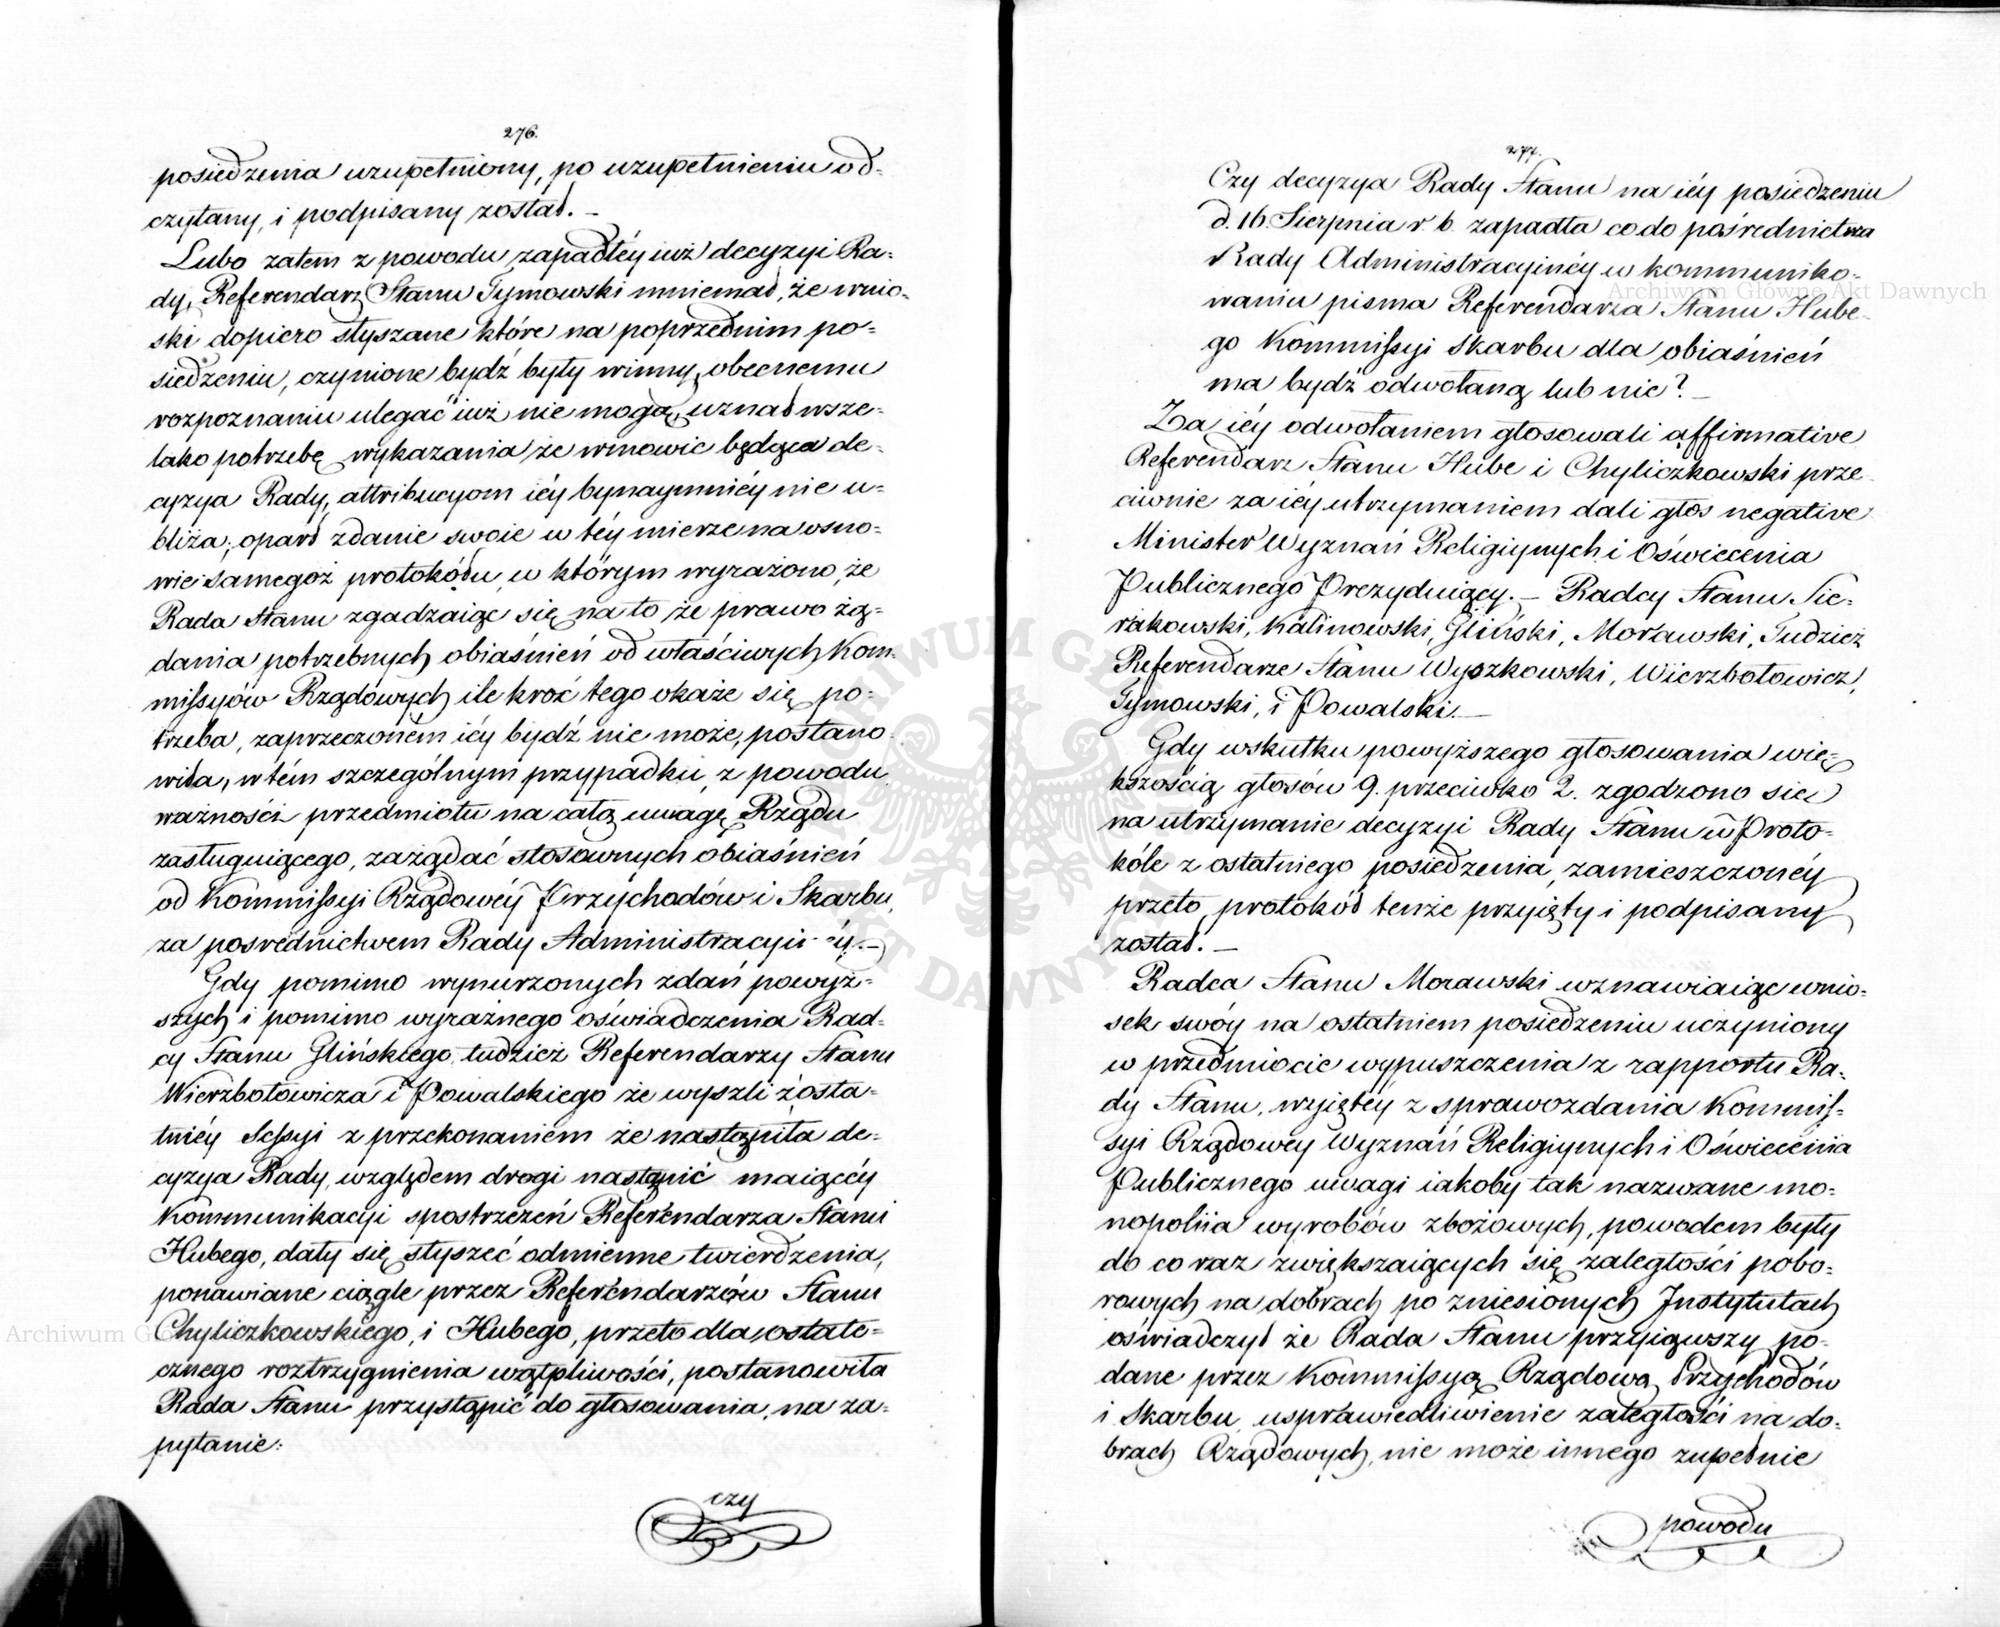 276.
posiedzenia uzupełniony, po uzupełnieniu od-
czytany, i podpisany został. –
Lubo zatem z powodu zapadłéy iuż decyzyi Ra-
dy, Referendarz Stanu Tymowski mniemał, że wnio-
ski dopiero słyszane które na poprzednim po-
siedzeniu, czynione bydź były winny, obecnemu
rozpoznaniu ulegać iuż nie mogą, uznał wsze-
lako potrzebę wykazania że w mowie będąca de-
cyzya Rady, attribucyom iéy bynaymniéy nie u-
bliża; oparł zdanie swoie w téy mierze na osno-
wie samegoż protokółu, w którym wyrażono, że
Rada Stanu zgadzaiąc się na to że prawo żą-
dania potrzebnych obiaśnień od właściwych Kom-
missyów Rządowych ile kroć tego okaże się po-
trzeba, zaprzeczoném iéy bydź nie może, postano-
wiła, w tém szczególnym przypadku, z powodu
ważności przedmiotu na całą uwagę Rządu
zasługuiącego, zażądać stosownych obiaśnień
od Kommissyi Rządowéy Przychodów i Skarbu,
za pośrednictwem Rady Administracyinéy. –
Gdy pomimo wynurzonych zdań powyż-
szych i pomimo wyraźnego oświadczenia Rad-
cy Stanu Glińskiego, tudzież Referendarzy Stanu
Wierzbołowicza i Powalskiego że wyszli z osta-
tniéy Sessyi z przekonaniem że nastąpiła de-
cyzya Rady, względem drogi nastąpić maiącéy
Kommunikacyi spostrzeżeń Referendarza Stanu
Hubego, dały się słyszeć odmienne twierdzenia,
ponawiane ciągle przez Referendarzów Stanu
Chyliczkowskiego, i Hubego, przeto dla ostate-
cznego roztrzygnienia wątpliwości, postanowiła
Rada Stanu przystąpić do głosowania, na za-
pytanie:
czy
277.
Czy decyzya Rady Stanu na iéy posiedzeniu
d. 16. Sierpnia r. b. zapadła co do pośrednictwa
Rady Administracyinéy w kommuniko-
waniu pisma Referendarza Stanu Hube-
go Kommissyi Skarbu dla obiaśnień
ma bydź odwołaną lub nie? –
Za iéy odwołaniem głosowali affirmative
Referendarz Stanu Hube i Chyliczkowski prze-
ciwnie za iéy utrzymaniem dali głos negative
Minister Wyznań Religiynych i Oświecenia
Publicznego Prezyduiący. – Radcy Stanu Sie-
rakowski, Kalinowski, Gliński, Morawski, Tudzież
Referendarze Stanu Wyszkowski, Wierzbołowicz,
Tymowski, i Powalski. –
Gdy wskutku powyższego głosowania wię-
kszością głosów 9. przeciwko 2. zgodzono się
na utrzymanie decyzyi Rady Stanu w Proto-
kóle z ostatniego posiedzenia, zamieszczonéy
przeto protokół tenże przyięty i podpisany
został. –
Radca Stanu Morawski wznawiaiąc wnio-
sek swóy na ostatniem posiedzeniu uczyniony
w przedmiocie wypuszczenia z rapportu Ra-
dy Stanu, wyiętéy z sprawozdania Kommis-
syi Rządowéy Wyznań Religiynych i Oświecenia
Publicznego uwagi iakoby tak nazwane mo-
nopoliia wyrobów zbożowych, powodem były
do co raz zwiększaiących się zaległości pobo-
rowych na dobrach po zniesionych Instytutach
oświadczył że Rada Stanu przyiąwszy po-
dane przez Kommissyą Rządową Przychodów
i Skarbu usprawiedliwienie zaległości na do-
brach Rządowych, nie może innego zupełnie
powodu
Archiwum Główne Akt Dawnych